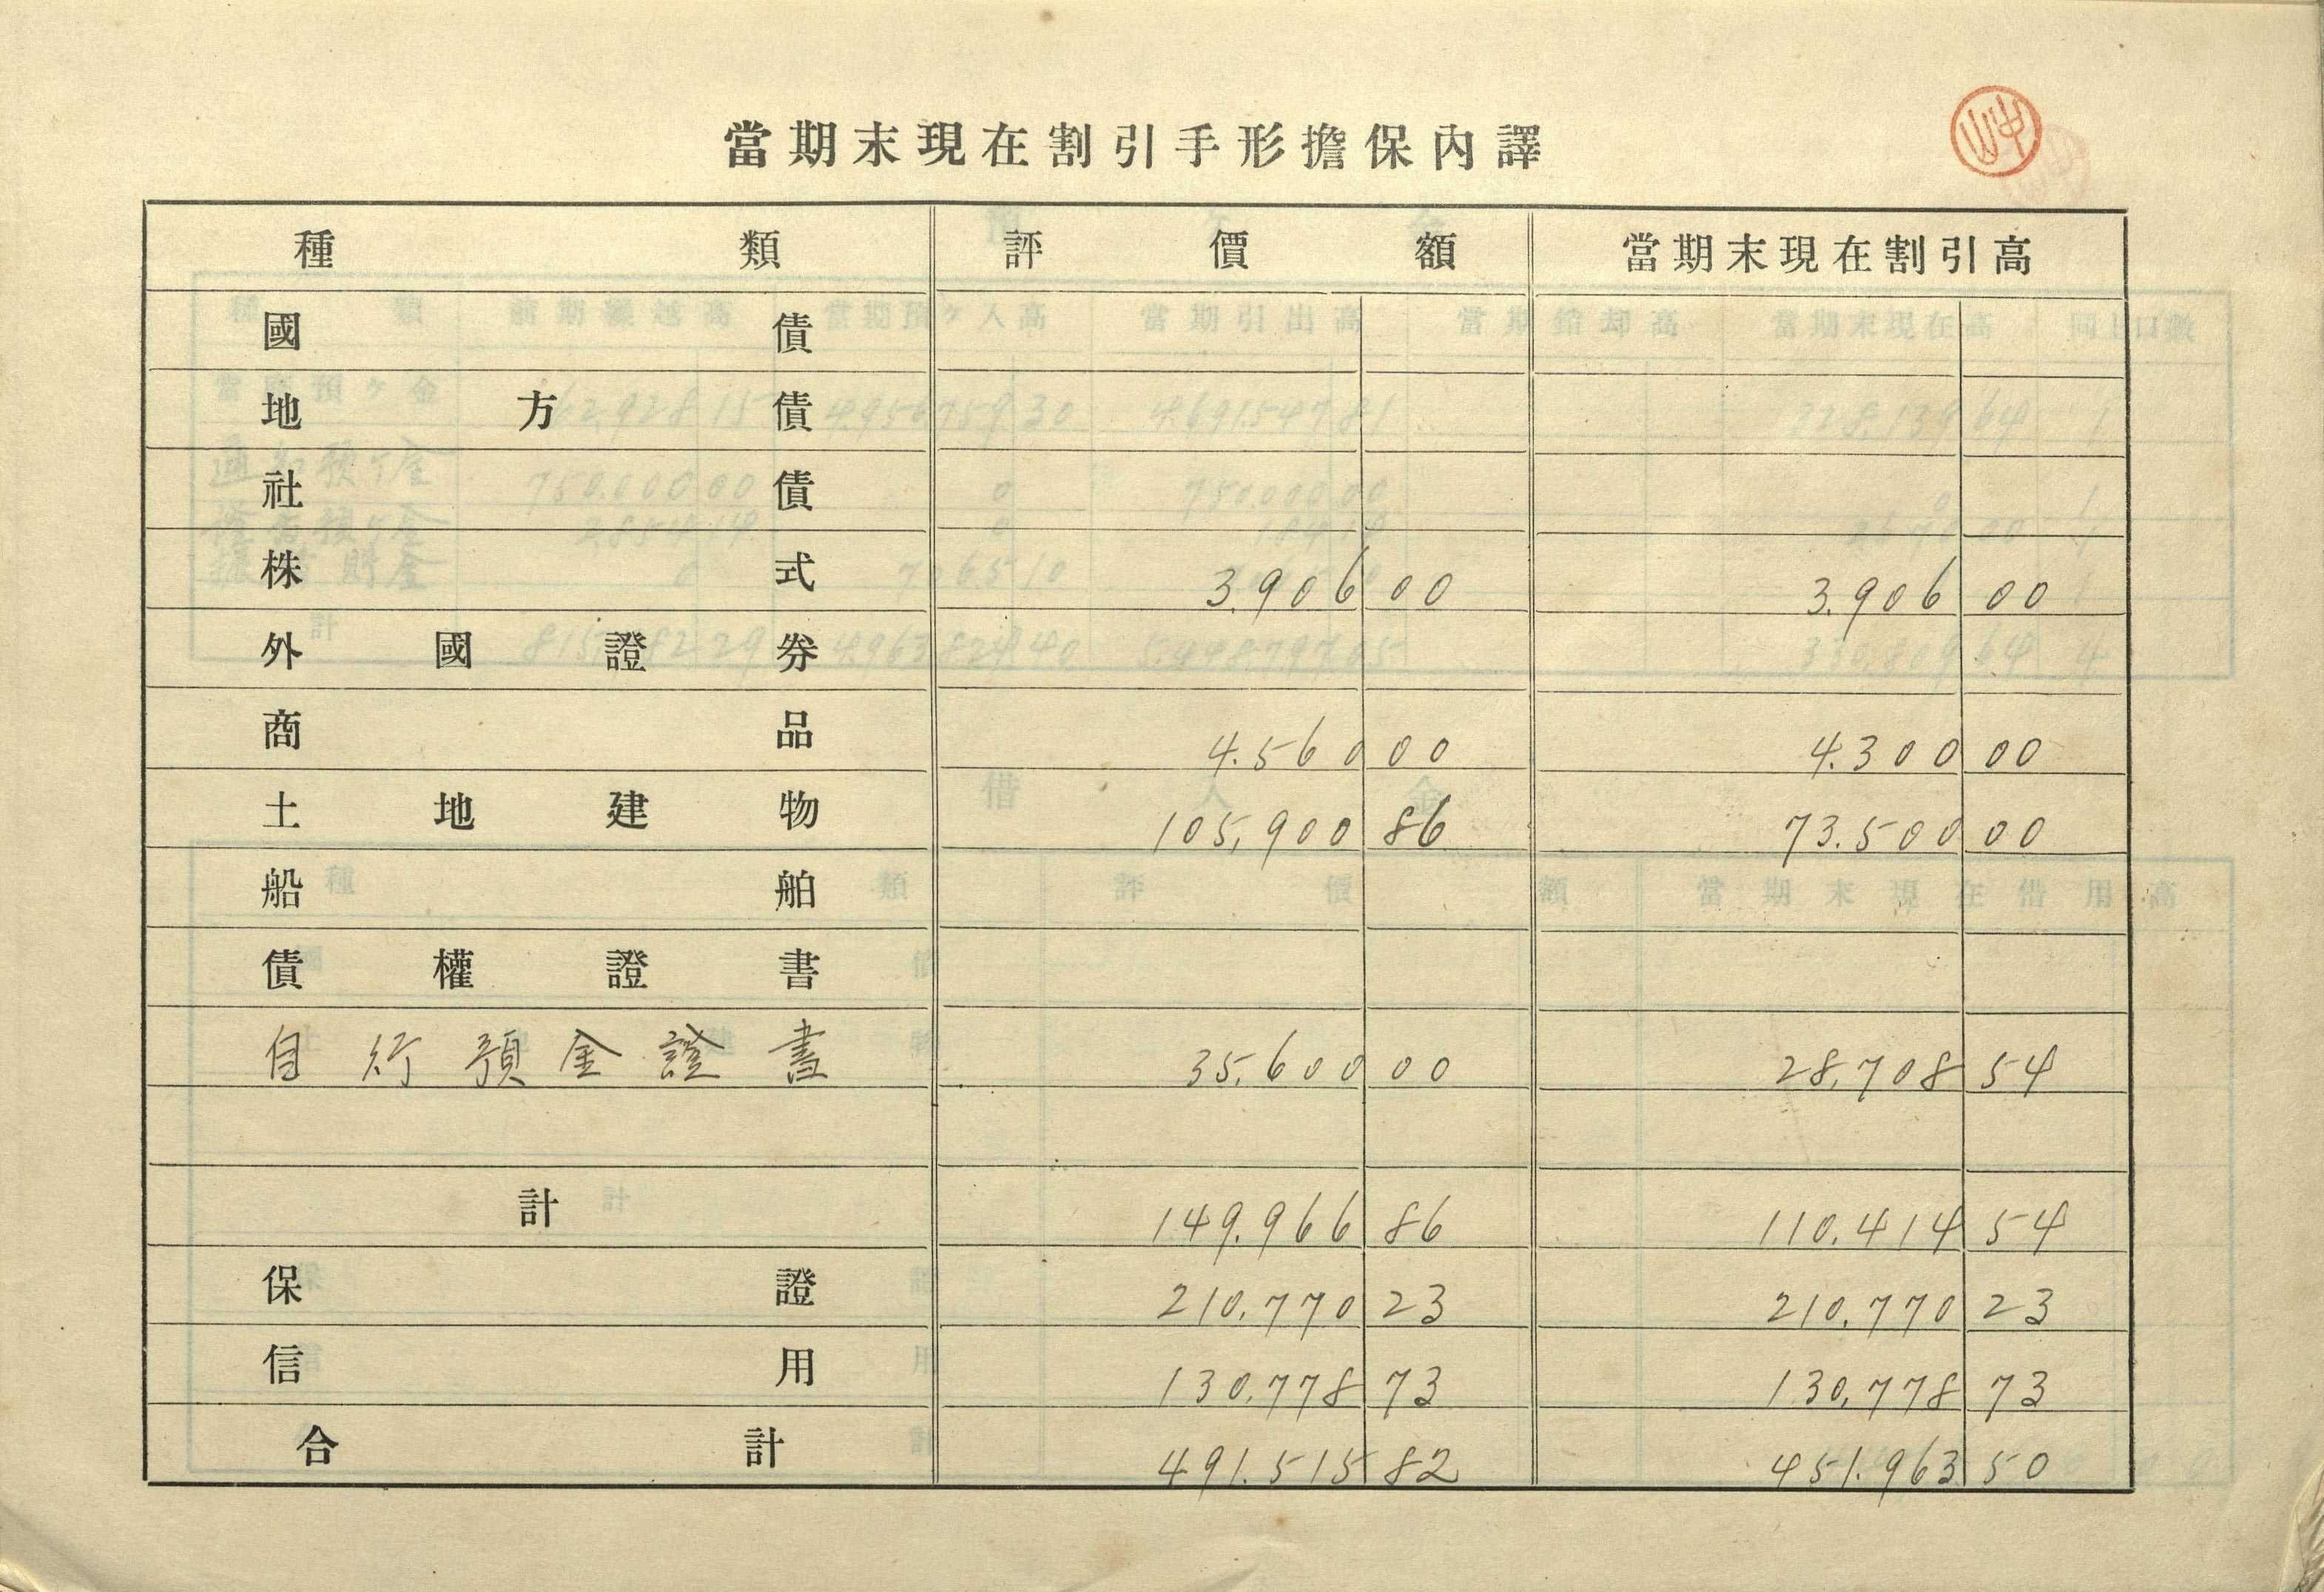 當期末現在割引手形擔保內譯
中山
種類 評價額 當期末現在割引高
國債
地方債
社債
株式 3.906 00 3.906 00
外國證券
商品 4.560 00 4.300 00
土地建物 105,900 86 73.500 00
船舶
債權證書
自行預金證書 35.600 00 28,708 54
計 149.966 86 110.414 54
保證 210.770 23 210.770 23
信用 130.778 73 130,778 73
合計 491.515 82 451.963 50